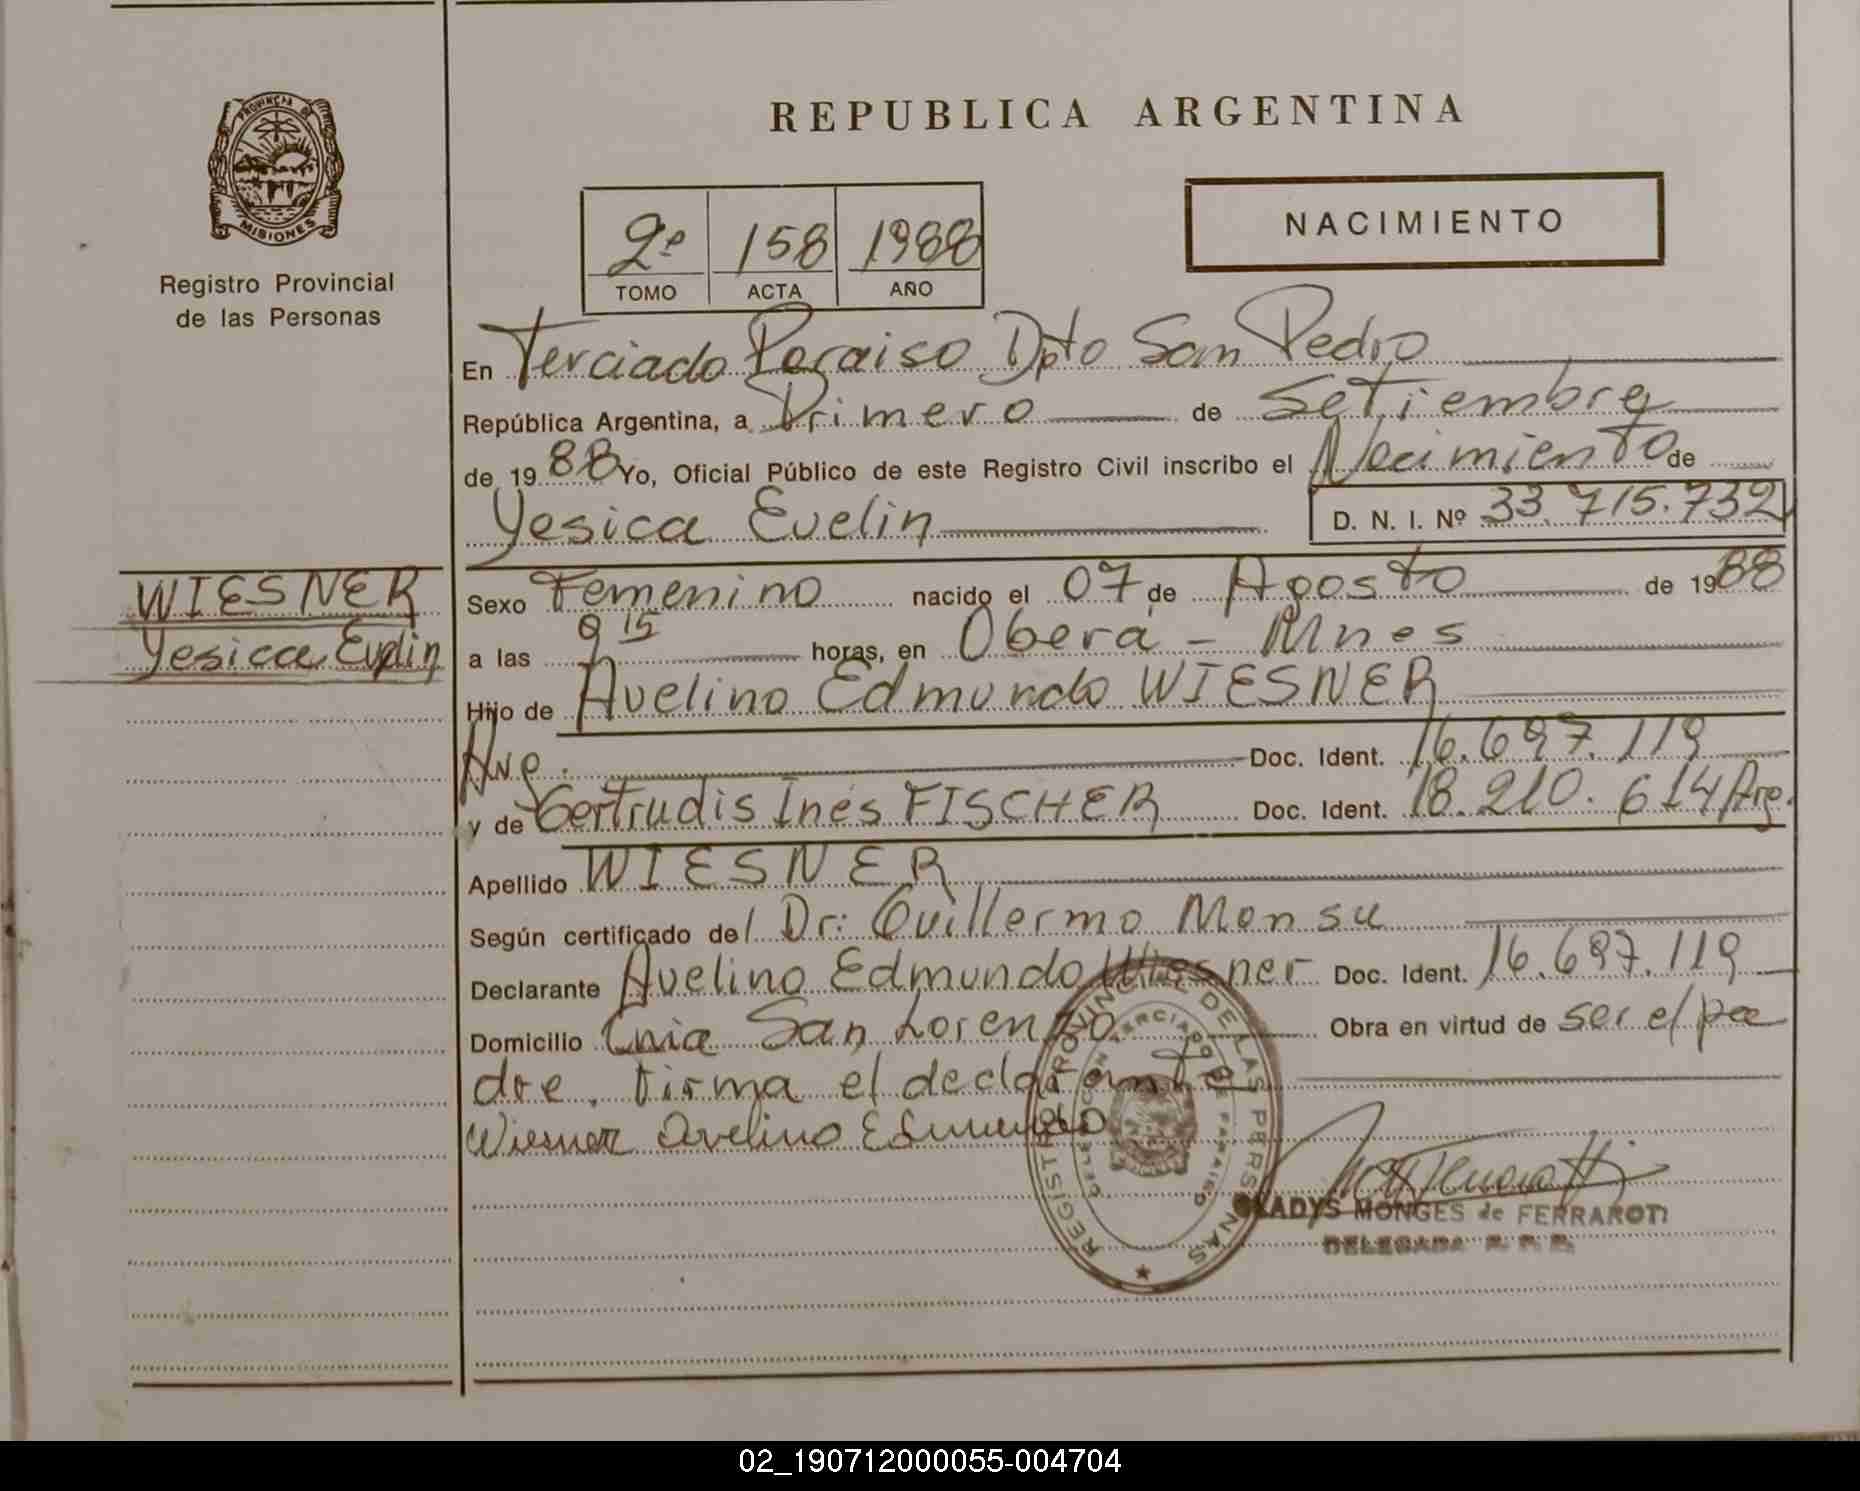 PROVINCIA DE
MISIONES
Registro Provincial
de las Personas
REPUBLICA ARGENTINA
NACIMIENTO
2º 158 1988
TOMO ACTA AÑO
En Terciado Paraiso Dpto San Pedro
República Argentina, a Primero de Setiembre
de 1988 Yo, Oficial Público de este Registro Civil inscribo el Nacimiento de
Yesica Evelin D. N. I. Nº 33.715.732
WIESNER
Yesica Evelin
Sexo Femenino nacido el 07 de Agosto de 1988
a las 9 15 horas, en Oberá - Mnes
Hijo de Avelino Edmundo WIESNER
Arg. Doc. Ident. 16.697.119
y de Gertrudis Inés FISCHER Doc. Ident. 18.210.614 Arg.
Apellido WIESNER
Según certificado del Dr: Guillermo Monsu
Declarante Avelino Edmundo Wiesner Doc. Ident. 16.697.119
Domicilio Cnia San Lorenzo. Obra en virtud de ser el pa
dre. Firma el declarante
Wiesner Avelino Edmundo
REGISTRO PROVINCIAL DE LAS PERSONAS
DELEGACION TERCIADO PARAISO
GLADYS MONGES de FERRAROTI
DELEGADA R. P. P.
02_190712000055-004704